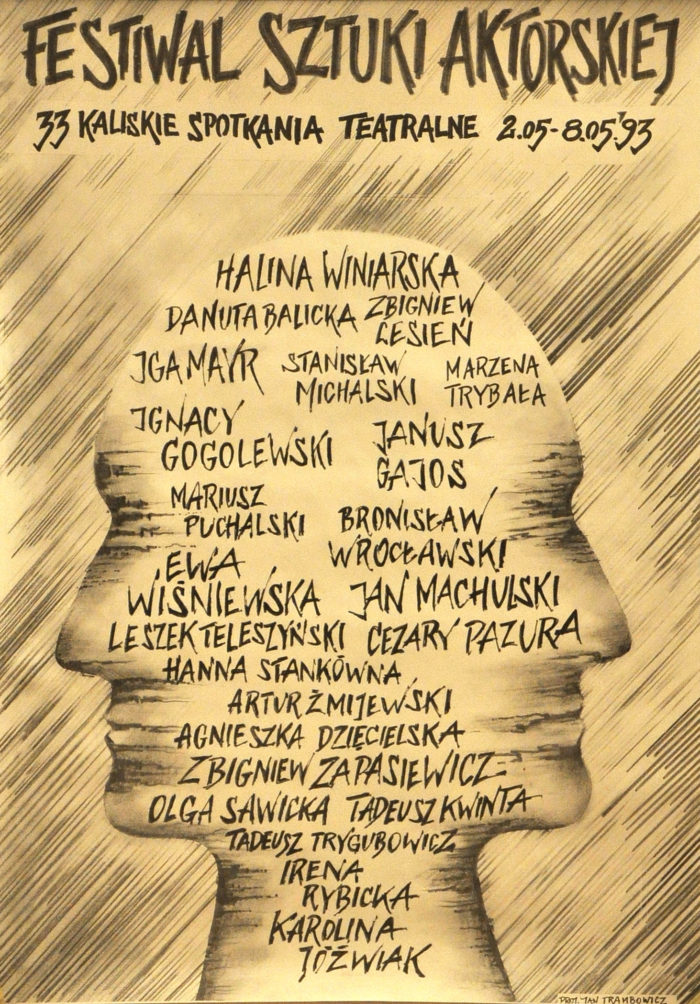 FESTIWAL SZTUKI AKTORSKIEJ
33 KALISKIE SPOTKANIA TEATRALNE 2.05-8.05.'93
HALINA WINIARSKA
DANUTA BALICKA ZBIGNIEW
LESIEŃ
IGA MAYR STANISŁAW
MICHALSKI
MARZENA
TRYBAŁA
IGNACY
GOGOLEWSKI
JANUSZ
GAJOS
MARIUSZ
PUCHALSKI
BRONISŁAW
WROCŁAWSKI
EWA
WIŚNIEWSKA
JAN MACHULSKI
LESZEK TELESZYŃSKI CEZARY PAZURA
HANNA STANKÓWNA
ARTUR ŻMIJEWSKI
AGNIESZKA DZIĘCIELSKA
ZBIGNIEW ZAPASIEWICZ
OLGA SAWICKA TADEUSZ KWINTA
TADEUSZ TRYGUBOWICZ
IRENA
RYBICKA
KAROLINA
JÓŹWIAK
PROJ. JAN TRAMBOWICZ